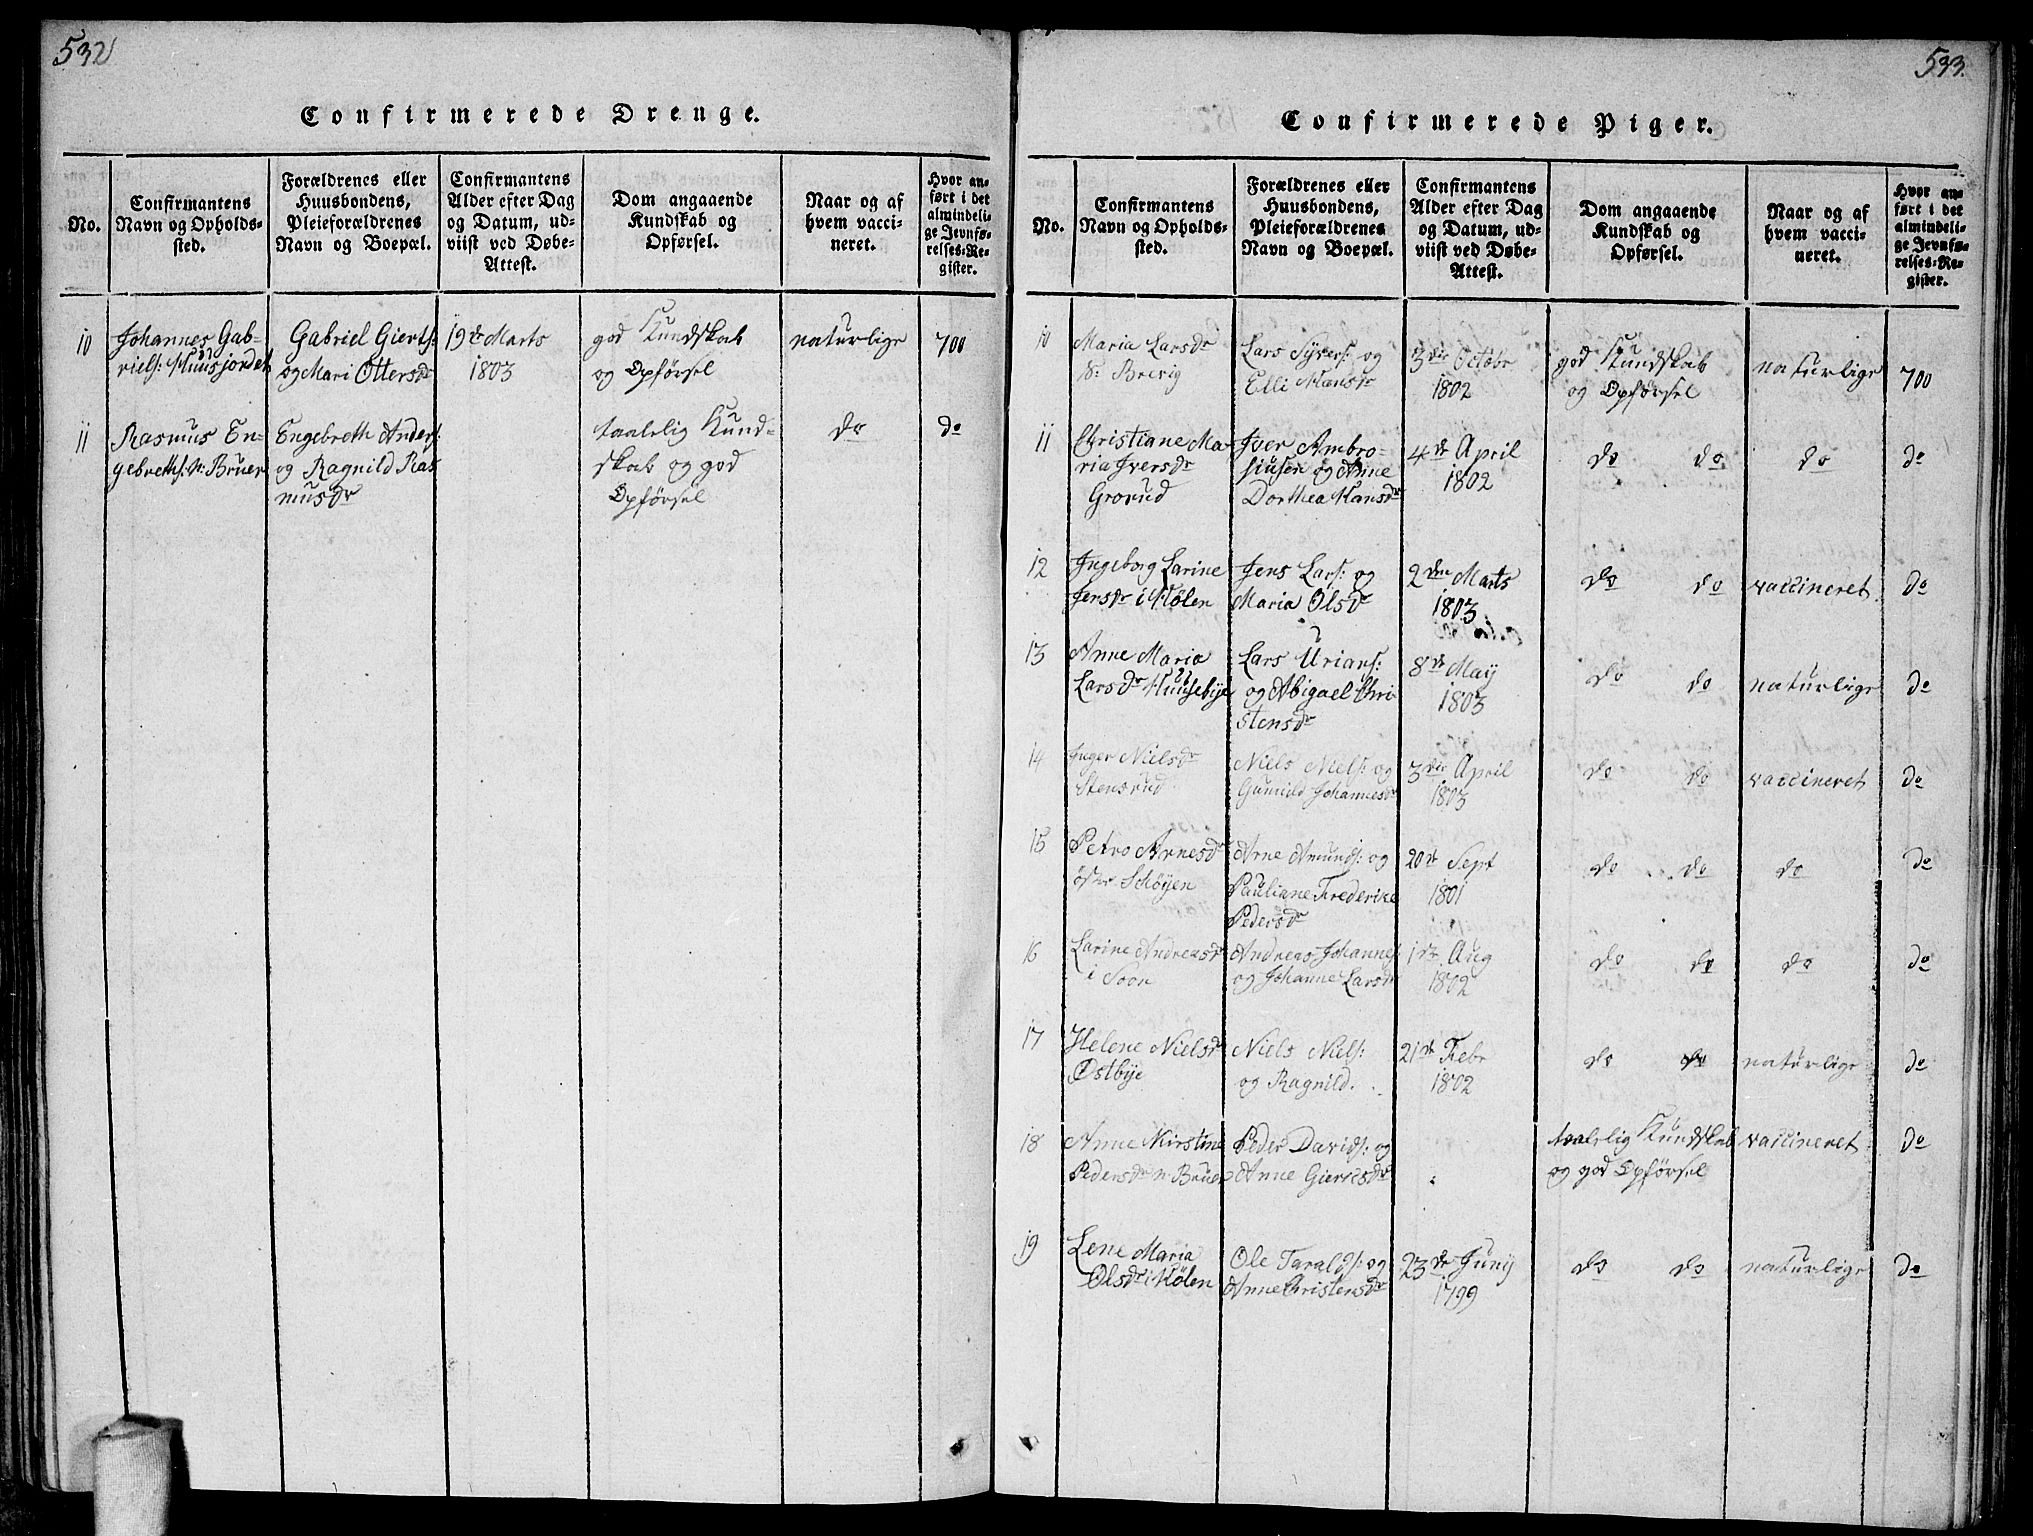 532
Confirmerede Drenge.
No.
Confirmantens
Navn og Opholds-
sted.
Forældrenes eller
Huusbondens,
Pleieforældrenes
Navn og Boepæl.
Confirmantens
Alder efter Dag
og Datum, ud-
viist ved Døbe-
Attest.
Dom angaaende
Kundskab og
Opførsel.
Naar og af
hvem vacci-
neret.
Hvor an-
ført i det
almindeli-
ge Jevnfø-
relses-Re-
gister.
10
Johannes Gab-
riels: Huusjordet
Gabriel Gierts:
og Mari Ottersdr
19de Marts
1803
god Kundskab
og Opförsel
naturlige
700
11
Rasmus En-
gebreths: n: Bruer
Engebreth Anders:
og Ragnild Ras
musdr
taalelig Kund-
skab og god
Opförsel
do
do
533.
Confirmerede Piger.
No.
Confirmantens
Navn og Opholds-
sted.
Forældrenes eller
Huusbondens,
Pleieforældrenes
Navn og Boepæl.
Confirmantens
Alder efter Dag
og Datum, ud-
viist ved Døbe-
Attest.
Dom angaaende
Kundskab og
Opførsel.
Naar og af
hvem vacci-
neret.
Hvor an-
ført i det
almindeli-
ge Jevnfø-
relses-Re-
gister.
10
Maria Larsdr
Brevig
Lars Syvers: og
Elli Hansdr
3die Octobr
1802
god Kundskab
og Opförsel
naturlige
700
11
Christiane Ma
ria Iversdr
Grorud
Iver Ambro-
siusen og Anne
Dorthea Hansdr
4de April
1802
do do
do
do
12
Ingeborg Larine
Jensdr i Hölen
Jens Lars: og
Maria Olsdr
2den Marts
1803
do do
vaccineret
do
13
Anne Maria
Larsdr Huusebye
Lars Urians:
og Abigael Chri
stensdr
8de May
1803
do do
naturlige
do
14
Inger Nielsdr
Stensrud
Niels Niels: og
Gunild Johannesdr
3die April
1803
do do
vaccineret
do
15
Petro Arnesdr
öster Schöyen
Arne Amunds: og
Pauliane Frederike
Pedersdr
20de Sept
1801
do do
do
do
16
Larine Andreasdr
i Soon
Andreas Johannes
og Johanne Larsdr
1ste Aug
1802
do do
do
do
17
Helene Nielsdr
Östbye
Niels Niels:
og Ragnild.
21de Febr
1802
do do
naturlige
do
18
Anne Kirstine
Pedersdr n: Bruer
Peder Davids: og
Anne Giertsdr
taalelig Kundskab
og god Opförsel
vaccineret
do
19
Lene Maria
Olsdr i Hölen
Ole Taralds: og
Anne Christensdr
23de Juny
1799
do do
naturlige
do